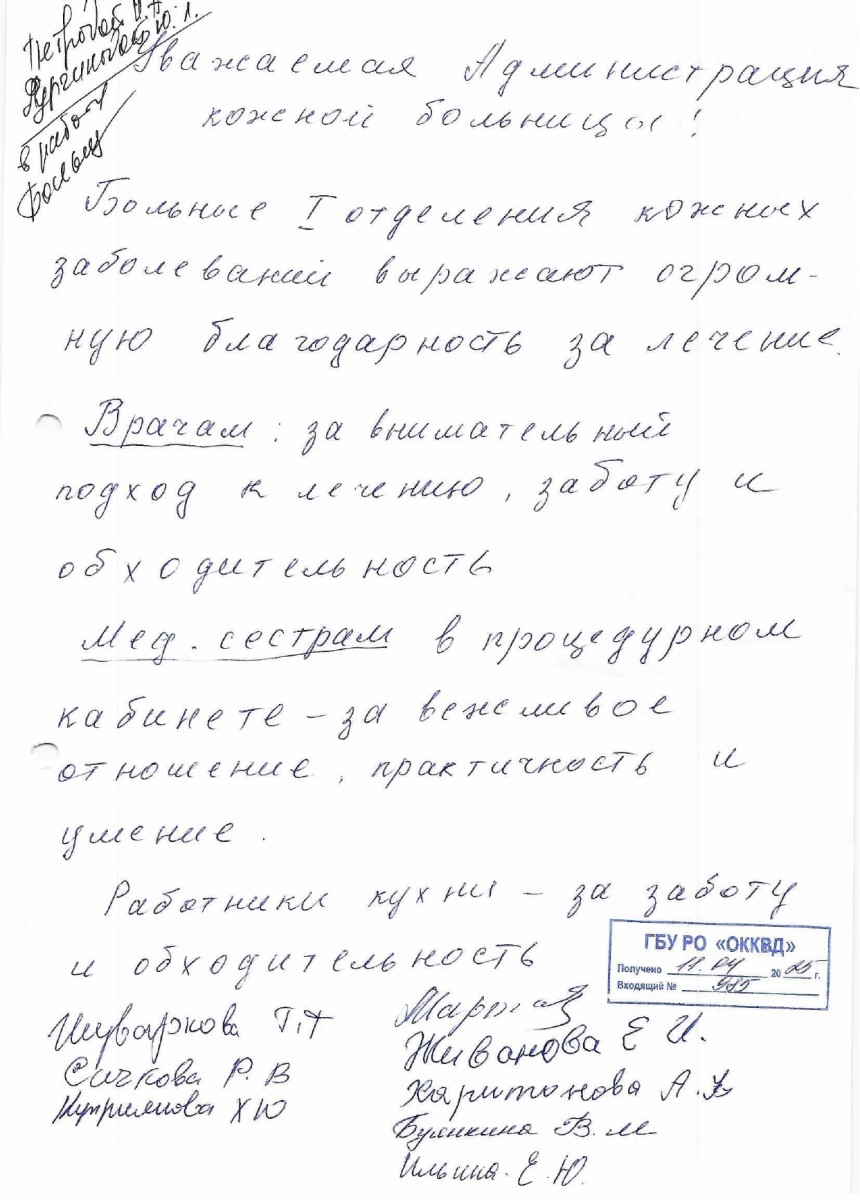 Петровой И.А.
Фургиновой Ю.А.
в работу
Уважаемая Администрация
кожной больницы!
Больные I отделения кожных
заболеваний выражают огром-
ную благодарность за лечение.
Врачам: за внимательный
подход к лечению, заботу и
обходительность
Мед. сестрам в процедурном
кабинете – за вежливое
отношение, практичность и
умение.
Работники кухни – за заботу
и обходительность
ГБУ РО «ОККВД»
Получено 11.04 2025 г.
Входящий № 985
Шуваркова Т.А
Сичкова Р. В
Х Ю
Живанова Е И.
Харитонова А.В
Булкина В.М
Ильина Е.Ю.